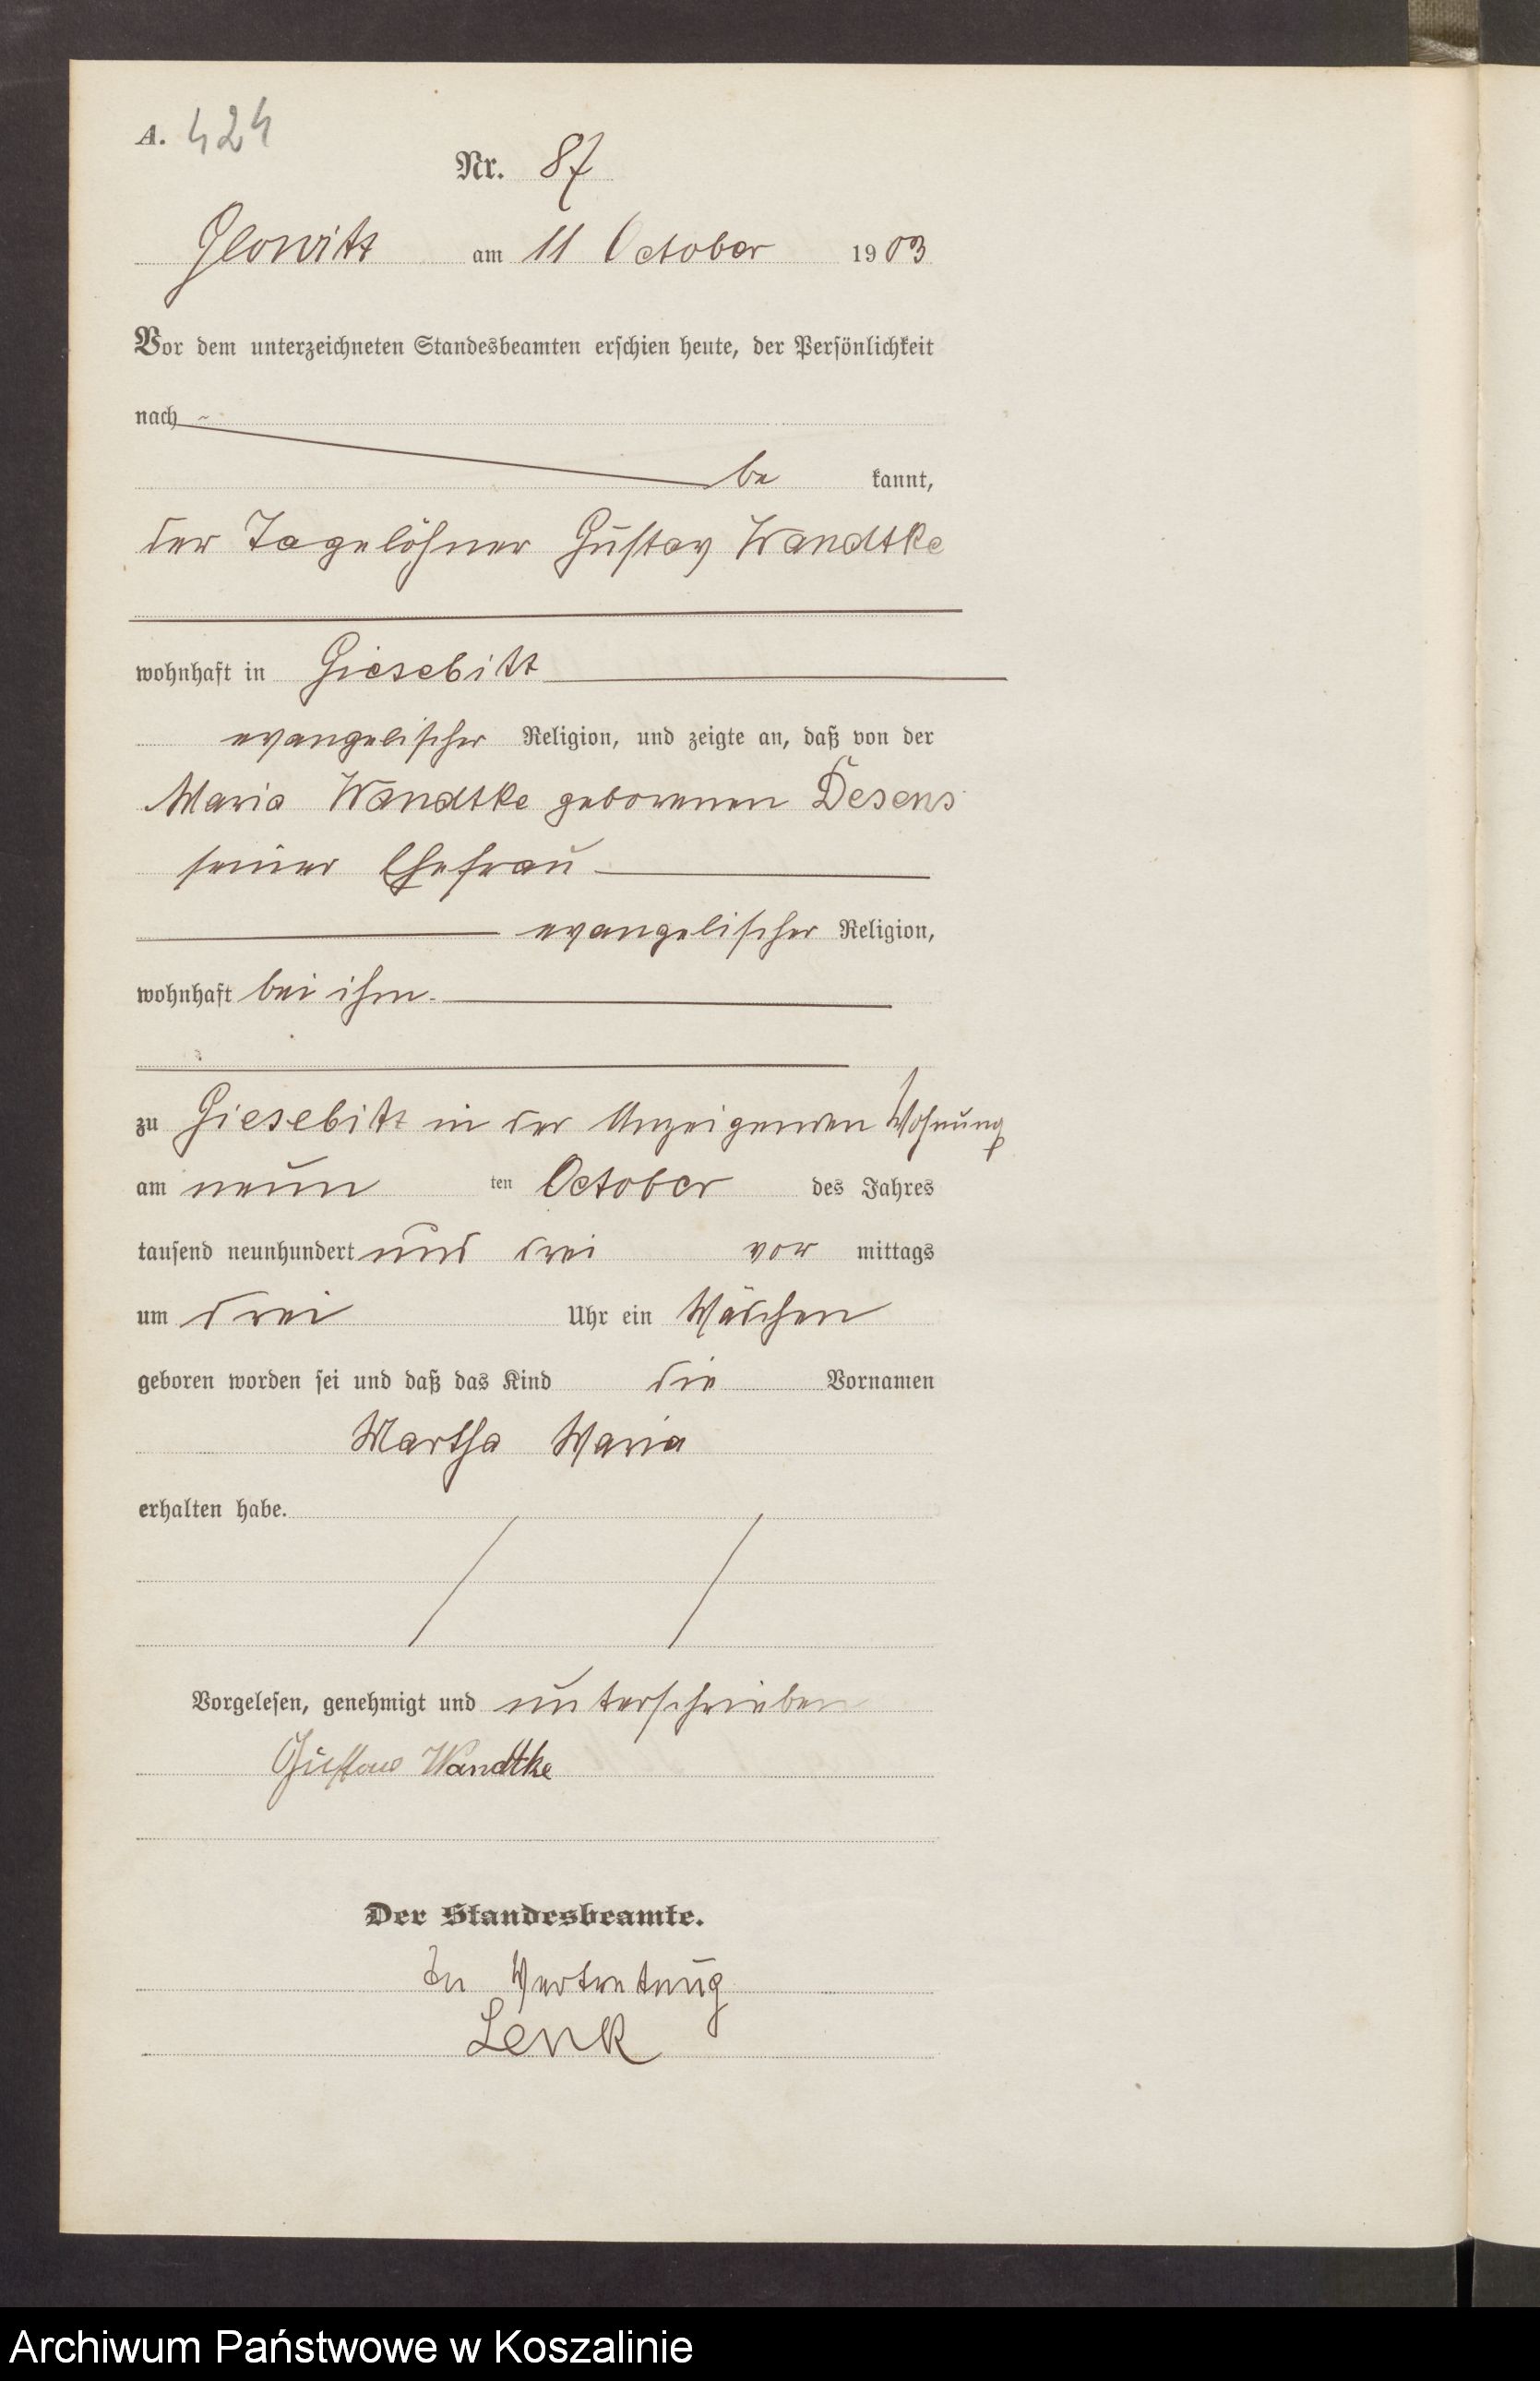 A. 424
Nr. 87
Glowitz am 11 October 1903
Vor dem unterzeichneten Standesbeamten erschien heute, der Persönlichkeit
nach
be kannt,
der Tagelöhner Gustav Wandtke
wohnhaft in Giesebitz
evangelischer Religion, und zeigte an, daß von der
Maria Wandtke geborenen Desens
seiner Ehefrau
evangelischer Religion,
wohnhaft bei ihm.
zu Giesebitz in der Anzeigenden Wohnung
am neun ten October des Jahres
tausend neunhundert und drei vor mittags
um drei Uhr ein Mädchen
geboren worden sei und daß das Kind die Vornamen
Martha Maria
erhalten habe.
Vorgelesen, genehmigt und unterschrieben
Gustav Wandtke
Der Standesbeamte.
In Vertretung
Lenk
Archiwum Państwowe w Koszalinie